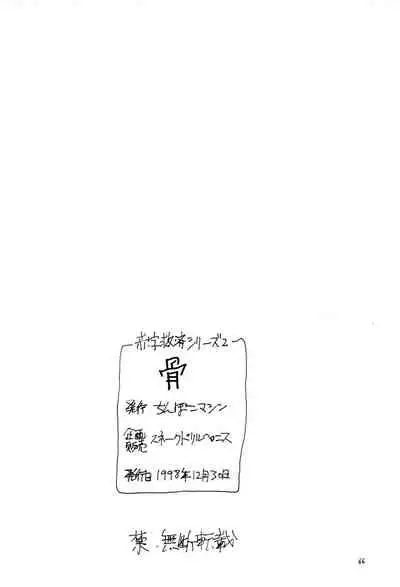 赤字救済シリーズ2
骨
発行 ちんぽこマシン
企画 販売 スネークドリルペニス
発行日 1998年12月30日
禁・無断転載
66